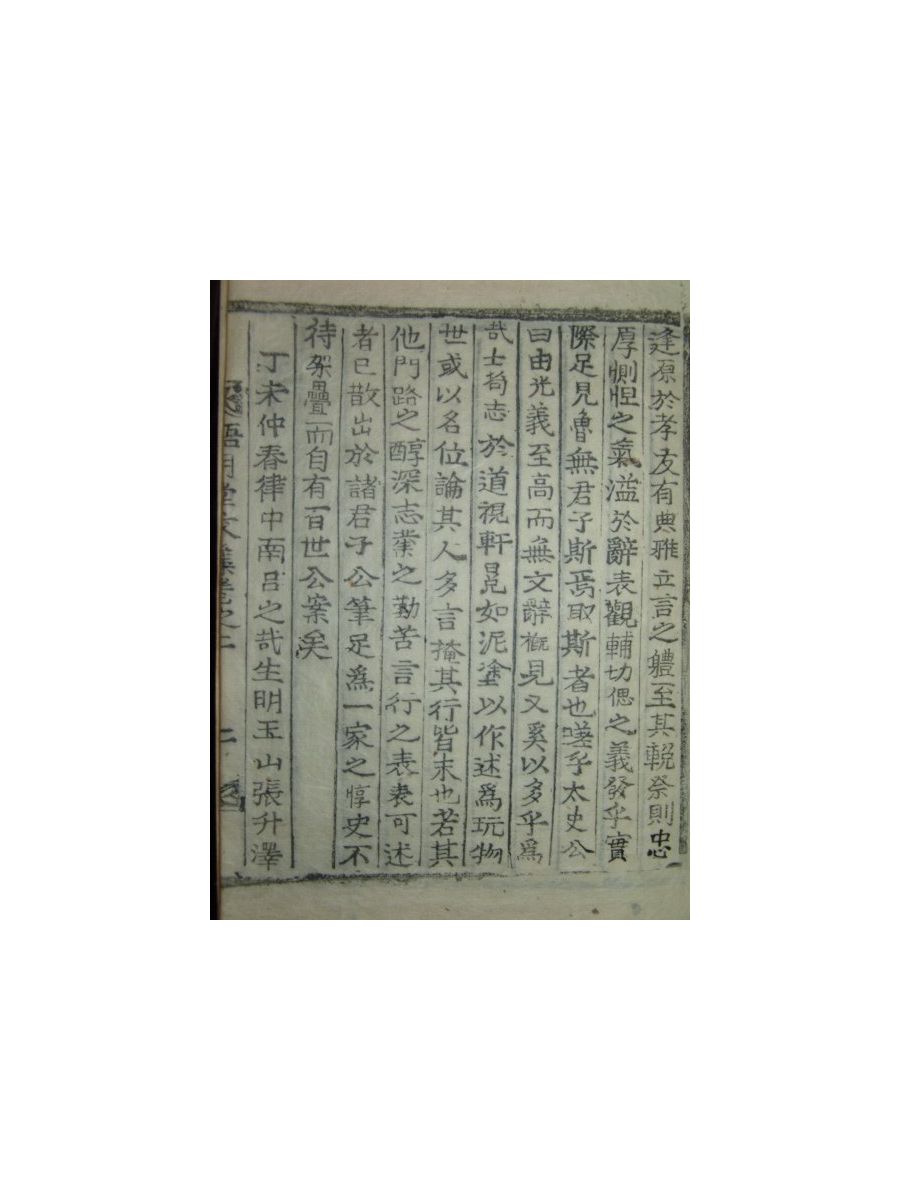 逢原於孝友有典雅立言之體至其輓祭則忠
厚惻怛之氣溢於辭表觀輔切偲之義發乎實
際足見魯無君子斯焉取斯者也嗟乎太史公
曰由光義至高而無文辭槪見又奚以多乎爲
哉士苟志於道視軒冕如泥塗以作述爲玩物
世或以名位論其人多言掩其行皆末也若其
他門路之醇深志業之勤苦言行之表表可述
者已散出於諸君子公筆足爲一家之惇史不
待架疊而自有百世公案矣
丁未仲春律中南呂之哉生明玉山張升澤
文集卷之二